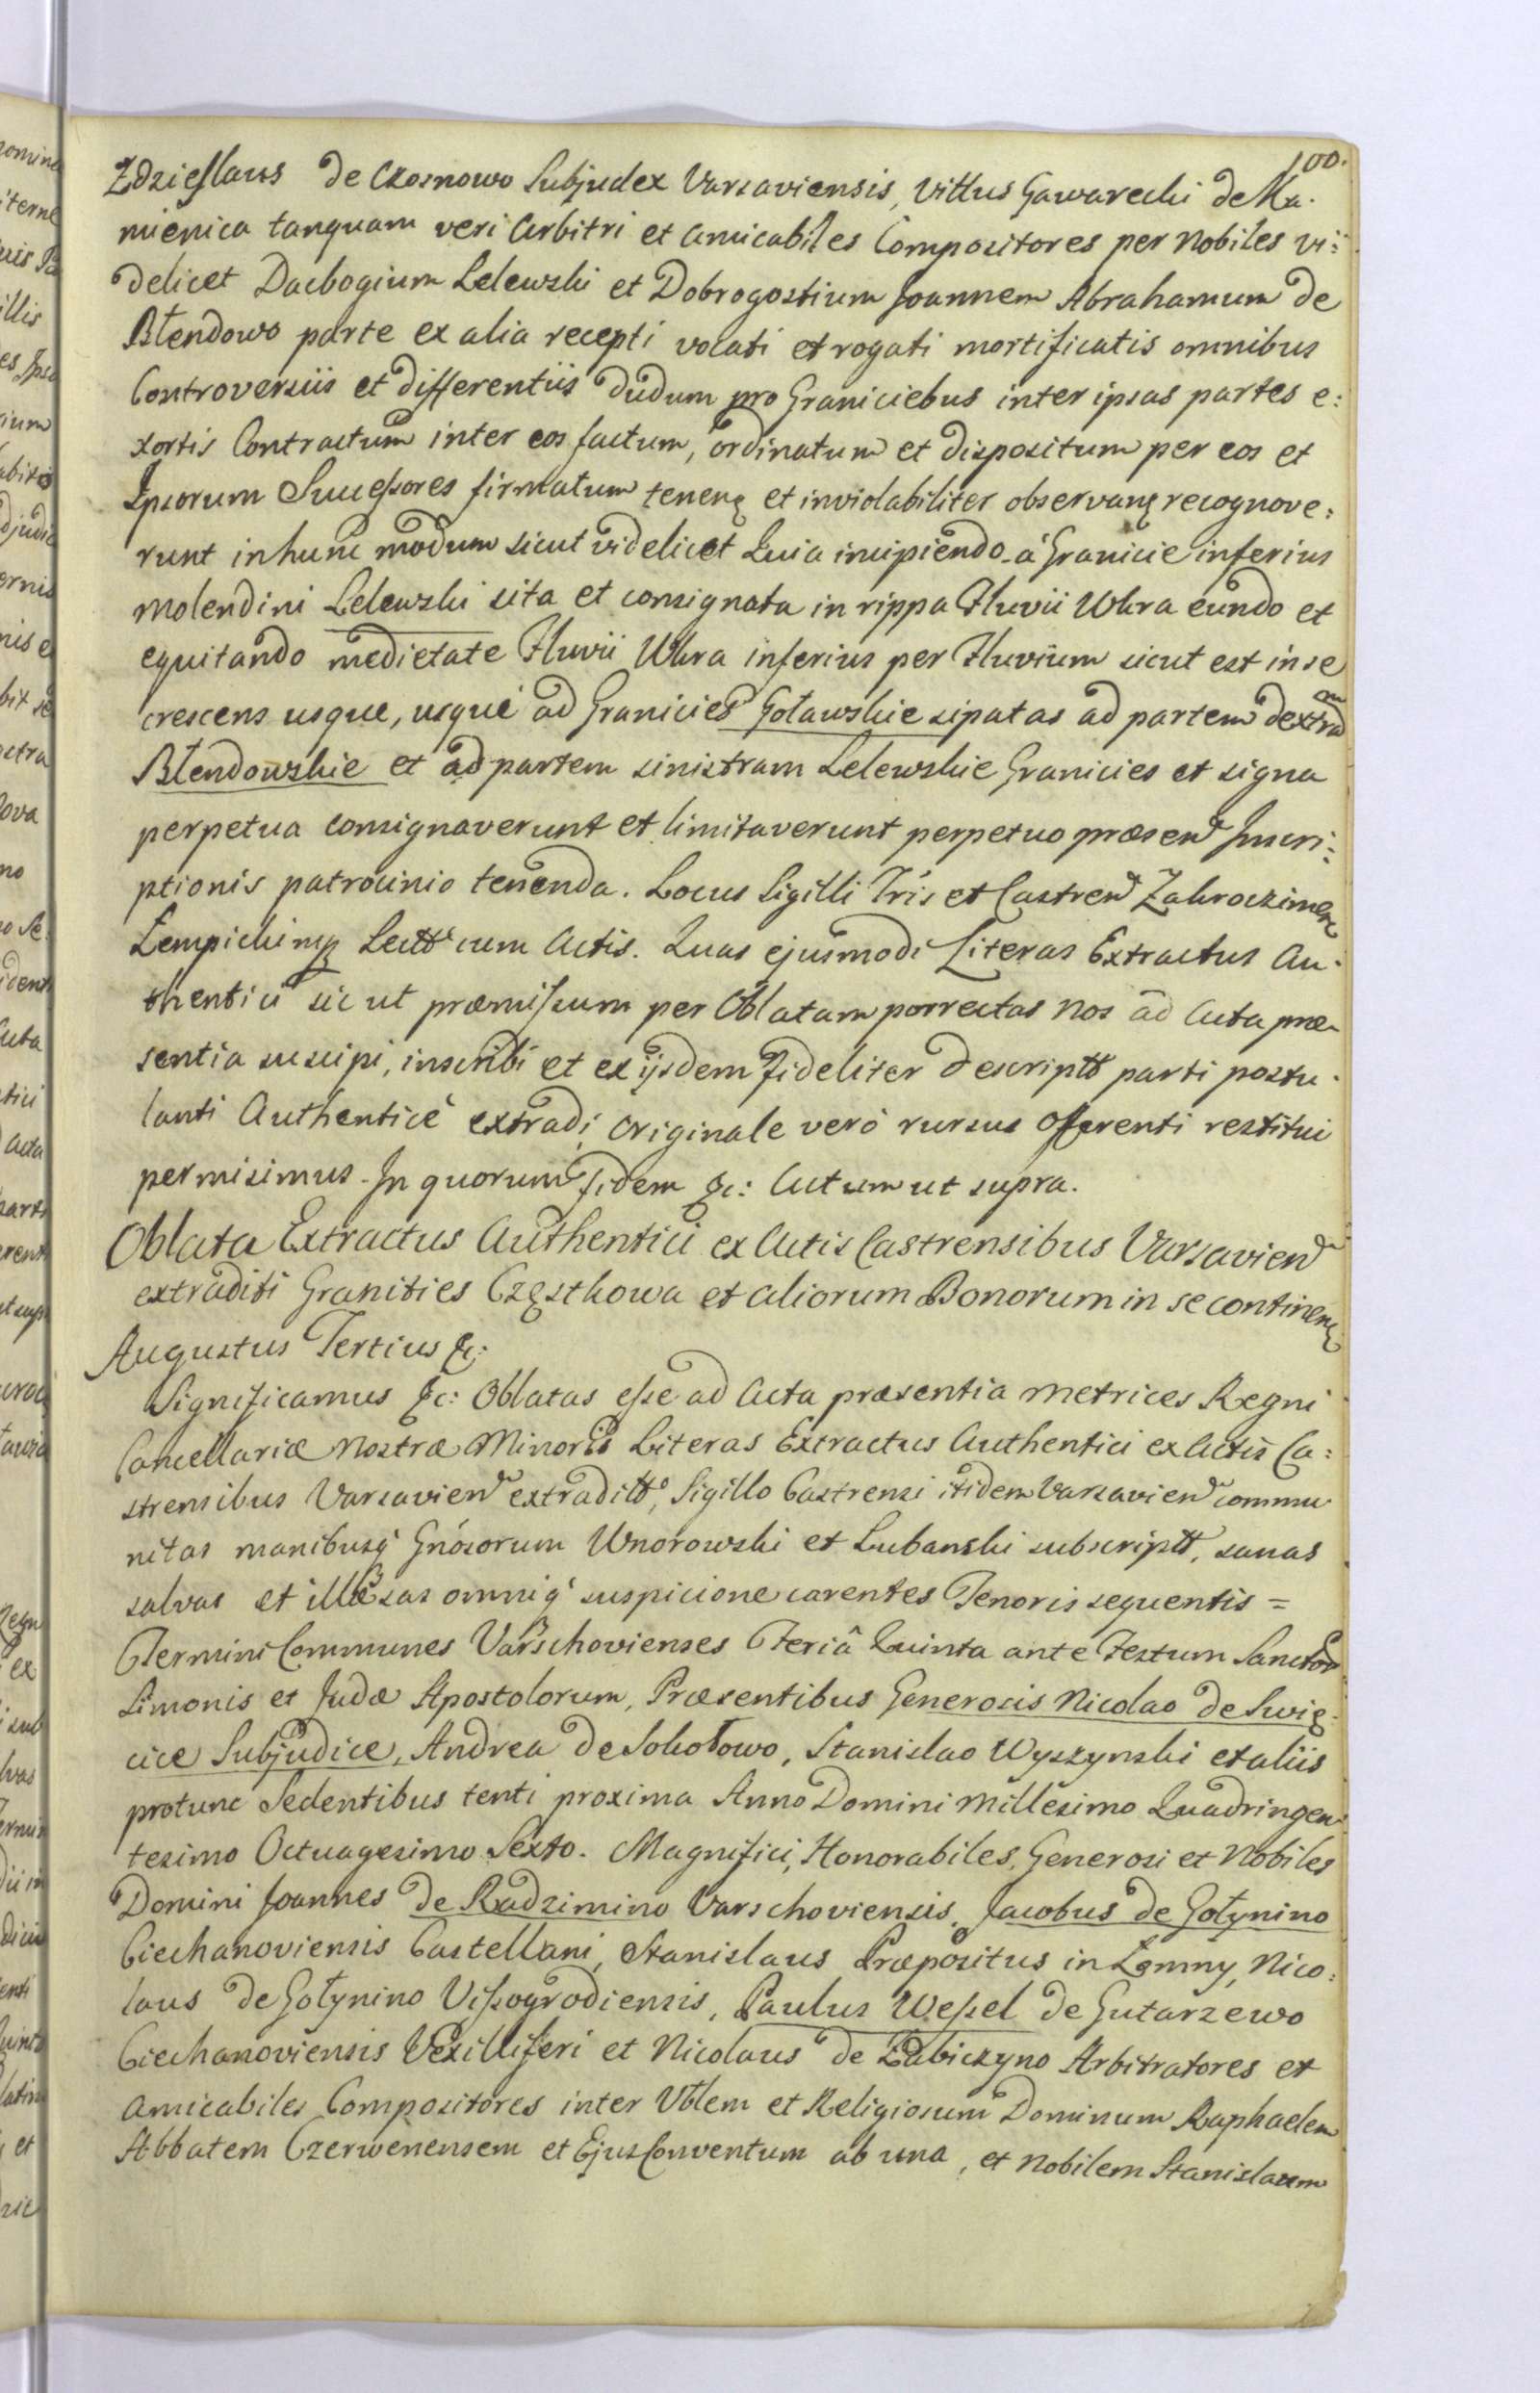 100.
Zdzieslaus de Czosnowo Subjudex Varsaviensis, Vittus Gawarecki de Ka-
mienica tanquam veri Arbitri et Amicabiles Compositores per Nobiles vi=
delicet Dacbogium Lelewski et Dobrogostium Joannem Abrahamum de
Błendowo parte ex alia recepti vocati et rogati mortificatis omnibus
Controversiis et differentiis dudum pro Graniciebus inter ipsas partes e:
xortis Contractum inter eos factum, ordinatum et dispositum per eos et
Ipsorum Successores firmatum tenen et inviolabiliter observan recognove:
runt in hunc modum sicut videlicet Quia incipiendo a Granicie inferius
Molendini Lelewski sita et consignata in rippa Fluvii Wkra eundo et
equitando medietate Fluvii Wkra inferius per Fluvium sicut est in se
crescens usque, usque ad Granicies Goławskie sipatas ad partem dextram
Błendowskie et ad partem sinistram Lelewskie Granicies et signa
perpetua consignaverunt et limitaverunt perpetuo præsen Inscri=
ptionis patrocinio tenenda. Locus Sigilli Tris et Castren Zakroczimen
Łempicki mp Lectt cum Actis. Quas ejusmodi Literas Extractus Au-
thentici sicut præmissum per Oblatam porrectas Nos ad Acta præ-
sentia suscipi, inscribi et ex ijsdem fideliter descriptt parti postu-
lanti Authenticè extradi, originale verò rursus Offerenti restitui
permisimus. In quorum fidem &c: Actum ut supra.
Oblata Extractus Authentici ex Actis Castrensibus Varsavien
extraditi Granities Częstkowa et aliorum Bonorum in se continen
Augustus Tertius &c:
Significamus &c: Oblatas esse ad Acta præsentia Metrices Regni
Cancellariæ Nostræ Minoris Literas Extractus Authentici ex Actis Ca:
strensibus Varsavien extraditt, Sigillo Castrensi itidem Varsavien commu
nitas manibusq Gnosorum Wnorowski et Lubanski subscriptt, sanas
salvas et illæsas omniq suspicione carentes Tenoris sequentis =
Termini Communes Varschovienses Feriâ Quinta ante Festum Sanctor
Simonis et Judæ Apostolorum, Præsentibus Generosis Nicolao de Swię-
cice Subjudice, Andrea de Sokołowo, Stanislao Wyszynski et aliis
protunc Sedentibus tenti proxima Anno Domini Millesimo Quadringen
tesimo Octuagesimo Sexto. Magnifici, Honorabiles, Generosi et Nobiles
Domini Joannes de Radzimino Varschoviensis, Jacobus de Gołynino
Ciechanoviensis Castellani, Stanislaus Præpositus in Łomny, Nico:
laus de Gołynino Vissogrodiensis, Paulus Wessel de Gutarzewo
Ciechanoviensis Vexilliferi et Nicolaus de Żabiczyno Arbitratores et
Amicabiles Compositores inter Vblem et Religiosum Dominum Raphaelem
Abbatem Czerwenensem et Ejus Conventum ab una, et Nobilem Stanislaum